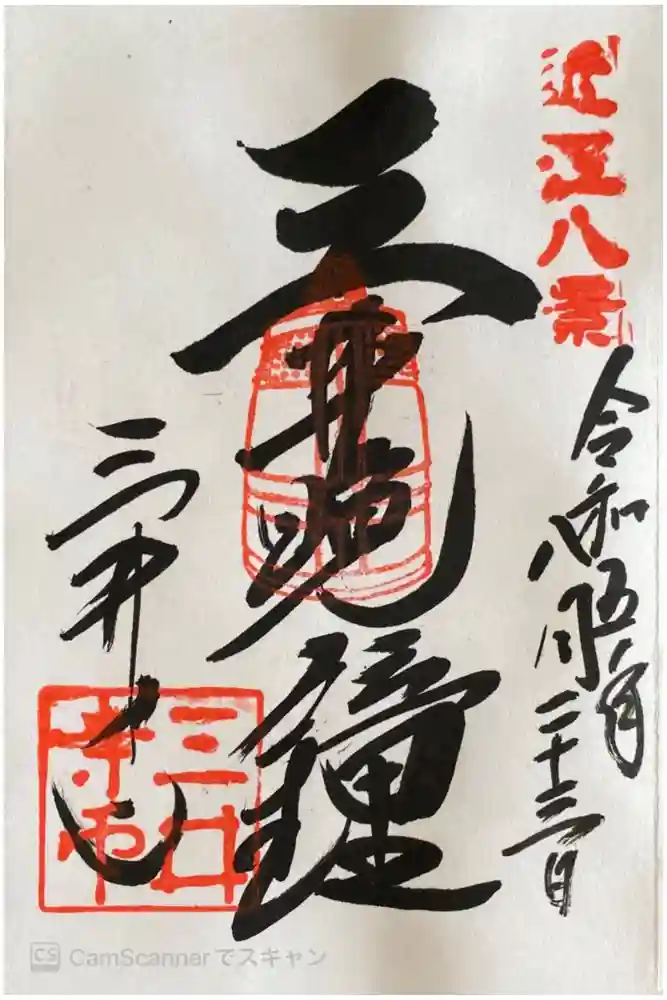 近江八景
令和五年
八月二十三日
三井晩鐘
三井寺
三井
寺印
CS CamScannerでスキャン